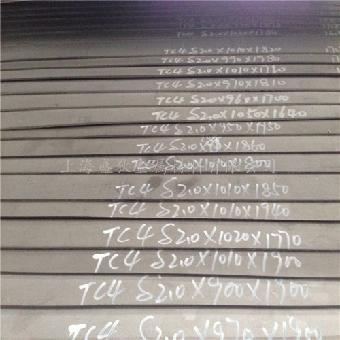 TC4 δ2.0×1010×1820
TC4 δ2.0×990×1780
TC4 δ2.0×1010×1110
TC4 δ2.0×910×1810
TC4 δ2.0×960×1700
TC4 δ2.0×1050×1640
TC4 δ2.0×950×1950
TC4 δ2.0 ×1860
TC4 δ2.0×1010×1800
TC4 δ2.0×1010×1850
TC4 δ2.0×1010×1940
TC4 δ2.0×1020×1770
TC4 δ2.0×1010×1900
TC4 δ2.0×900×1900
TC4 δ2.0×970×1900